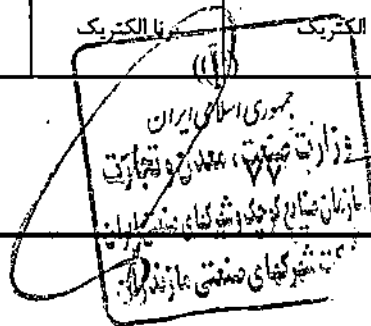 الکتریک
برنا الکتریک
جمهوری اسلامی ایران
وزارت صنعت، معدن و تجارت
۷۷
سازمان صنایع کوچک و شهرکهای صنعتی ایران
شرکت شهرکهای صنعتی مازندران